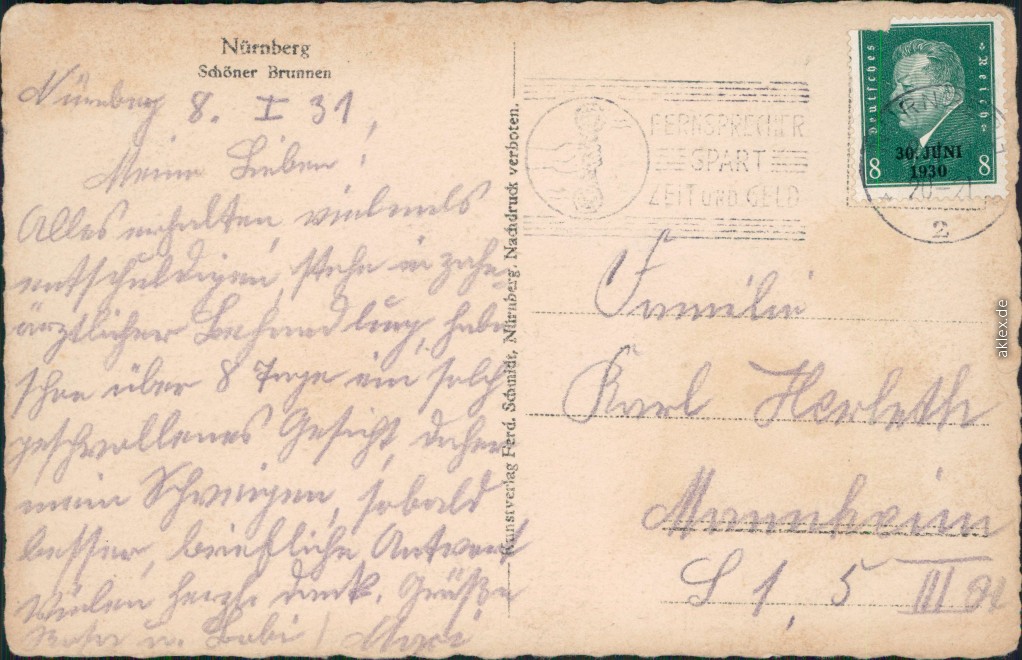 Nürnberg
Schöner Brunnen
Nürnberg 8. I 31,
Meine Lieben!
Alles erhalten, vielmals
entschuldigen, stehe in zahn-
ärztlicher Behandlung, habe
schon über 8 Tage ein solch
geschwollenes Gesicht, daher
mein Schweigen, sobald
besser, briefliche Antwort
Vielen herzl. Dank. Grüße
u. Babi
Kunstverlag Ferd. Schmidt, Nürnberg. Nachdruck verboten.
FERNSPRECHER
SPART
ZEIT UND GELD
Deutsches Reich
30. JUNI
1930
8 8
20-21
2
Familie
Karl Herleth
Mannheim
S 1, 5 III
aklex.de